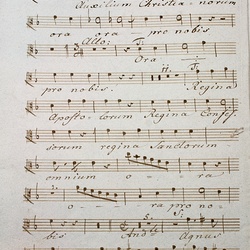 Auxilium Christia - norum
ora ora pro nobis
Allo: T:
Ora
pro nobis. H. Regina
Aposto - lorum Regina Confes
sorum regina Sanctorum
omnium o - - ra
o - - ra pro no
bis And: Agnus